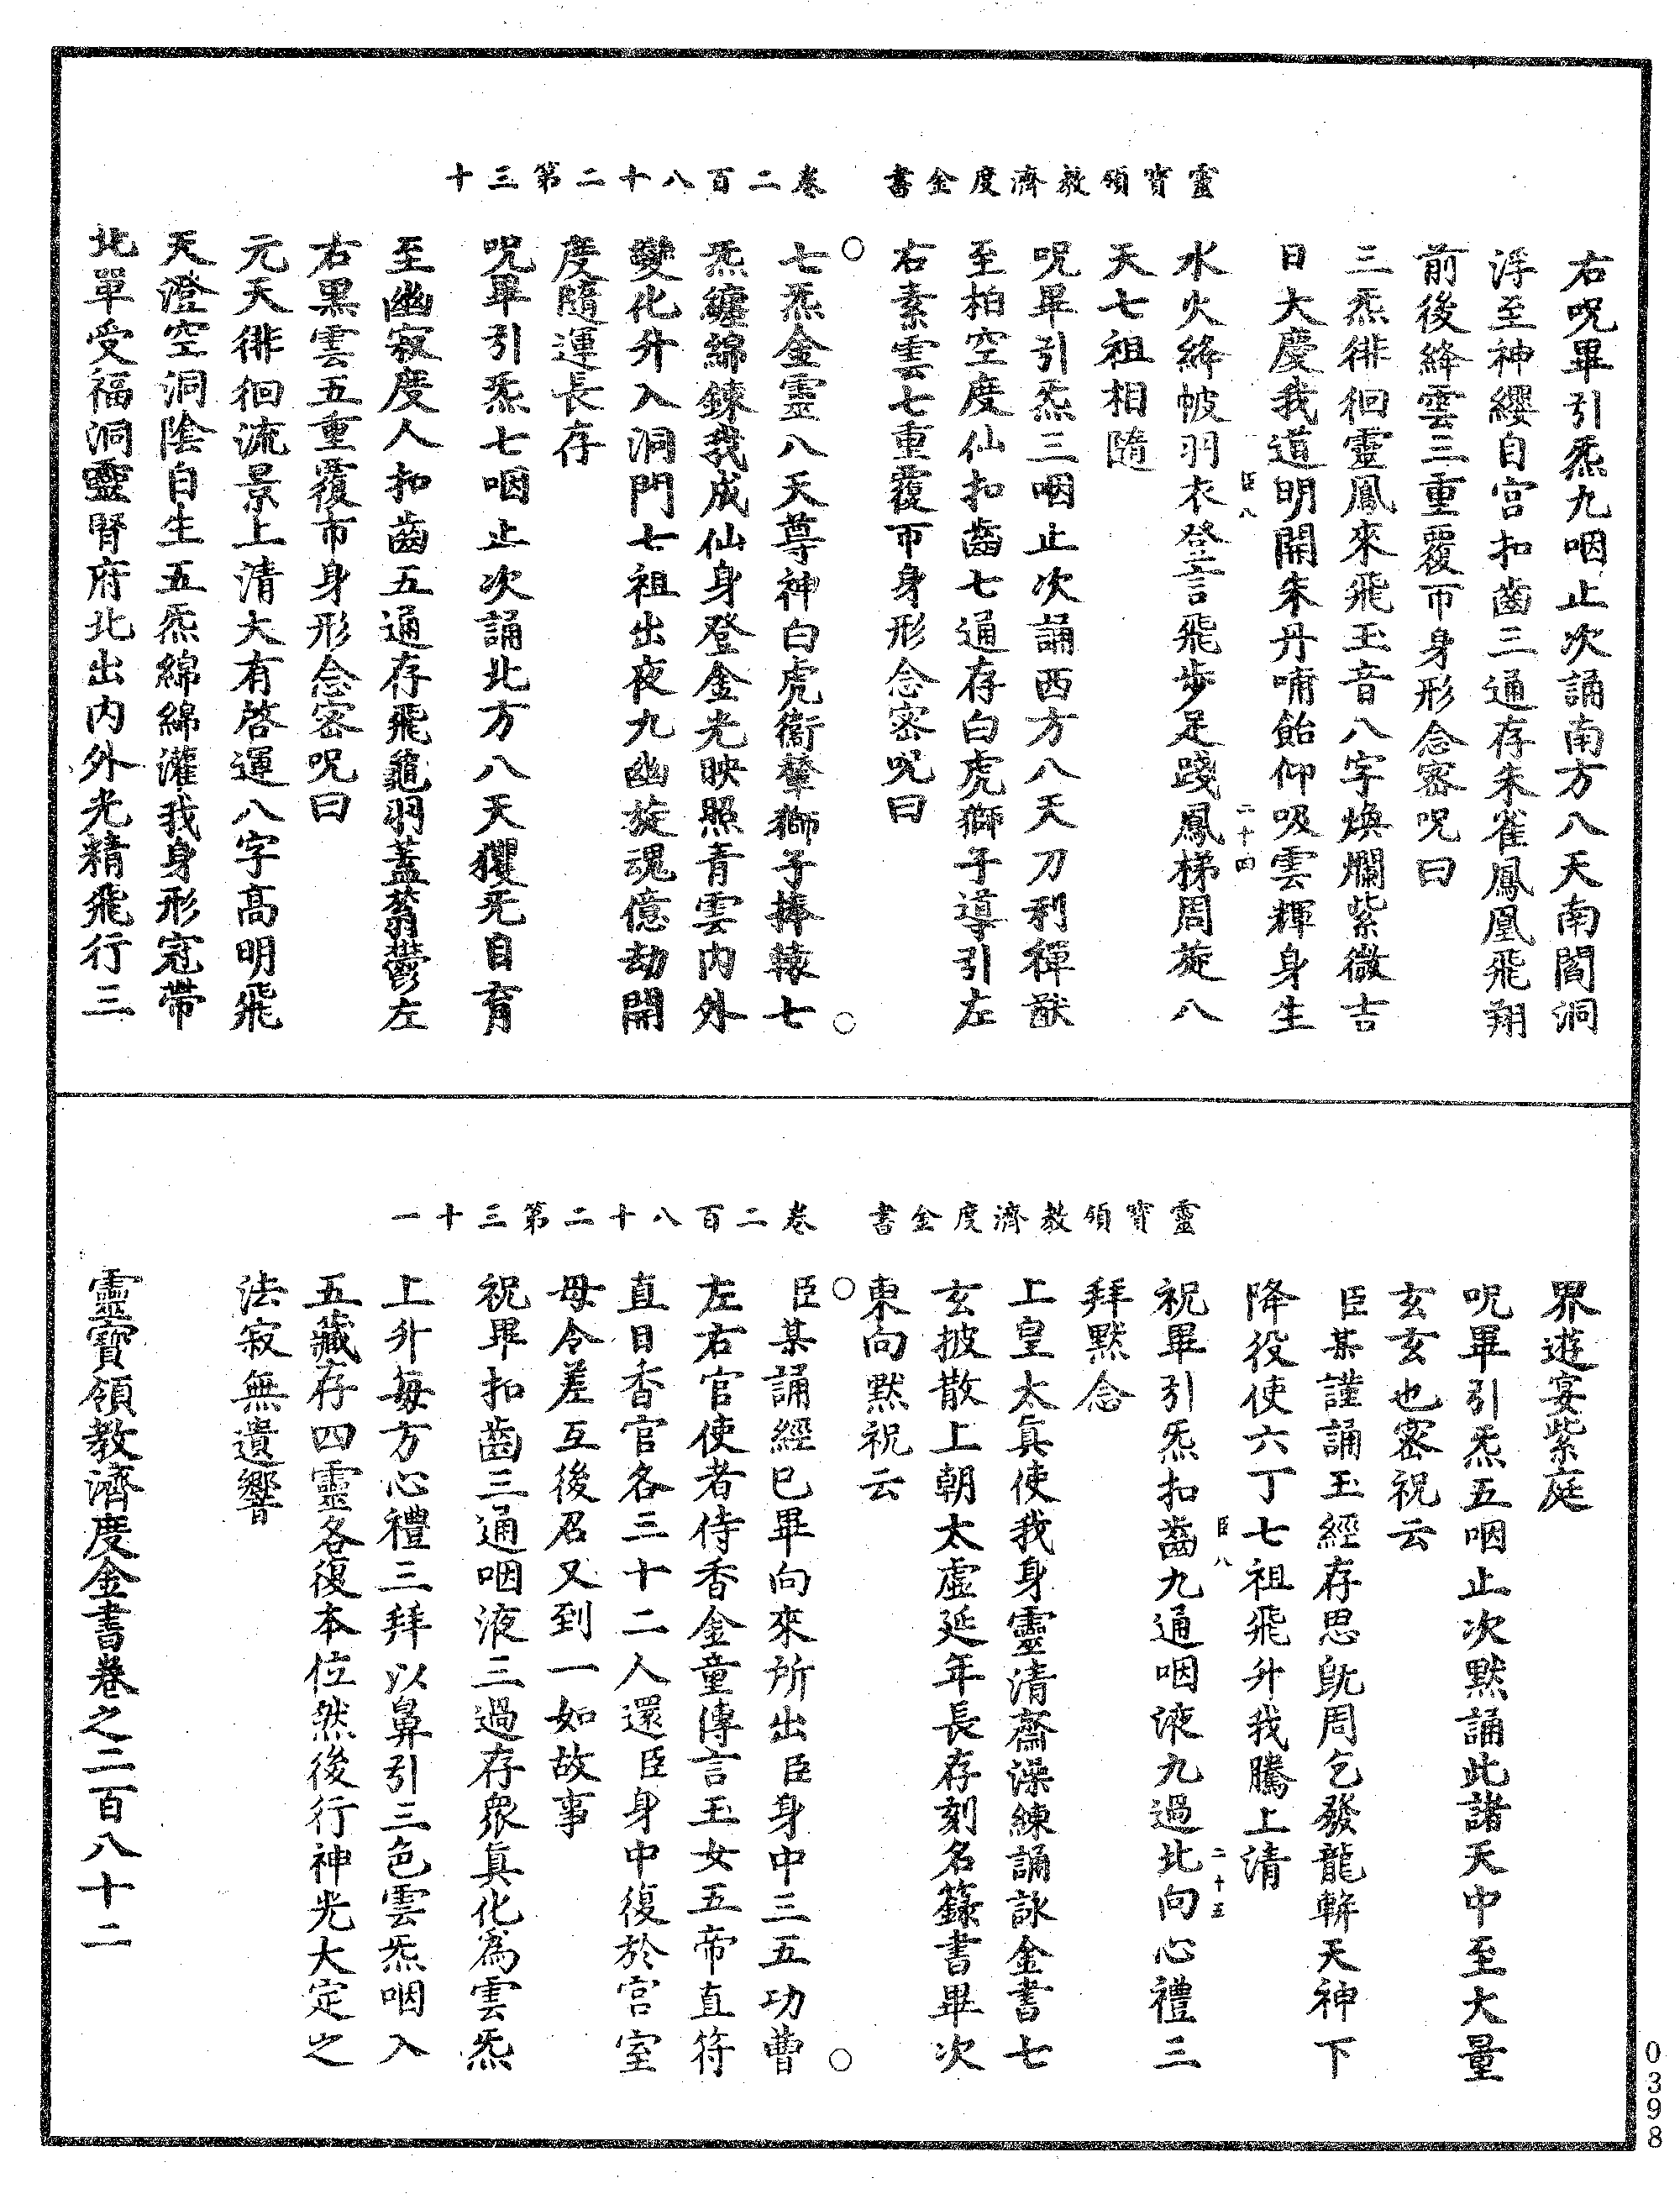 靈寶領教濟度金書　卷二百八十二第三十
右呪畢引炁九咽止次誦南方八天南閻洞
浮至神纓自宫扣齒三通存朱雀鳳凰飛翔
前後絳雲三重覆帀身形念密呪曰
三炁徘徊靈鳳來飛玉音八字煥爛紫微吉
日大慶我道明開朱丹哺飴仰吸雲輝身生
臣八　二十四
水火絳帔羽衣登言飛步足踐鳳梯周旋八
天七祖相隨
呪畢引炁三咽止次誦西方八天刀利禪猷
至柏空度仙扣齒七通存白虎獅子導引左
右素雲七重覆帀身形念密呪曰
七炁金靈八天尊神白虎衞輦獅子捧轅七
炁纏綿鍊我成仙身登金光映照青雲内外
變化升入洞門七祖出夜九幽旋魂億劫開
度隨運長存
呪畢引炁七咽止次誦北方八天玃无自育
至幽寂度人扣齒五通存飛龜羽蓋蓊鬱左
右黑雲五重覆帀身形念密呪曰
元天徘徊流景上清大有啓運八字高明飛
天澄空洞陰自生五炁綿綿灌我身形冠帶
北單受福洞靈腎府北出内外光精飛行三
靈寶領教濟度金書　卷二百八十二第三十一
界遊宴紫庭
呪畢引炁五咽止次默誦此諸天中至大量
玄玄也密祝云
臣某謹誦玉經存思旣周乞發龍軿天神下
降役使六丁七祖飛升我騰上清
臣八　二十五
祝畢引炁扣齒九通咽液九過北向心禮三
拜默念
上皇太眞使我身靈清齋澡練誦詠金書七
玄披散上朝太虛延年長存刻名籙書畢次
東向默祝云
臣某誦經巳畢向來所出臣身中三五功曹
左右官使者侍香金童傳言玉女五帝直符
直日香官各三十二人還臣身中復於宫室
毋令差互後召又到一如故事
祝畢扣齒三通咽液三過存衆眞化爲雲炁
上升每方心禮三拜以鼻引三色雲炁咽入
五藏存四靈各復本位然後行神光大定之
法寂無遺響
靈寶領教濟度金書卷之二百八十二
0398